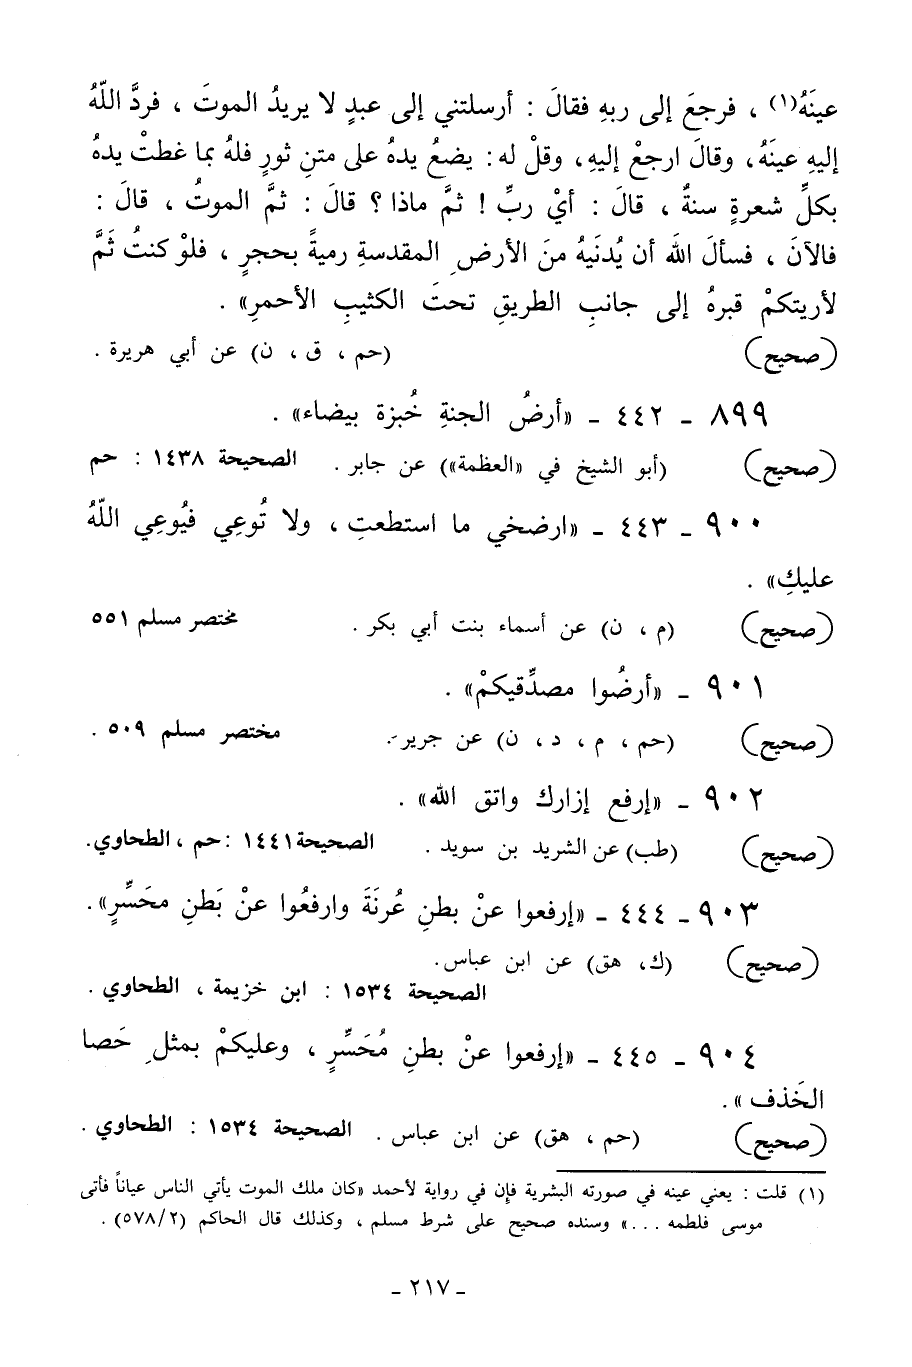 عينَهُ(١) ، فرجعَ إلى ربهِ فقالَ : أرسلتني إلى عبدٍ لا يريدُ الموتَ ، فردَّ اللّهُ
إليهِ عينَهُ، وقالَ ارجعْ إليهِ، وقلْ له: يضعُ يدهُ على متنِ ثورٍ فلهُ بما غطتْ يدهُ
بكلِّ شعرةٍ سنةٌ ، قالَ : أيْ ربِّ ! ثمَّ ماذا ؟ قالَ : ثمَّ الموتُ ، قالَ :
فالآنَ ، فسألَ اللهَ أن يُدنَيهُ منَ الأرضِ المقدسةِ رميةً بحجرٍ ، فلوْ كنتُ ثَمَّ
لأريتكمْ قبرهُ إلى جانبِ الطريقِ تحتَ الكثيبِ الأحمرِ» .
(صحيح) (حم ، ق ، ن) عن أبي هريرة .
٨٩٩ ـ ٤٤٢ ـ «أرضُ الجنةِ خُبزة بيضاء» .
(صحيح) (أبو الشيخ في «العظمة») عن جابر . الصحيحة ١٤٣٨ : حم
٩٠٠ ـ ٤٤٣ ـ «ارضخي ما استطعتِ ، ولا تُوعِي فيُوعِي اللّهُ
عليكِ» .
(صحيح) (م ، ن) عن أسماء بنت أبي بكر . مختصر مسلم ٥٥١
٩٠١ ـ «أرضُوا مصدِّقيكمْ» .
(صحيح) (حم ، م ، د ، ن) عن جرير . مختصر مسلم ٥٠٩ .
٩٠٢ ـ «إرفع إزارك واتق الله» .
(صحيح) (طب) عن الشريد بن سويد . الصحيحة١٤٤١ :حم ، الطحاوي.
٩٠٣ ـ ٤٤٤ ـ «إرفعوا عنْ بطنِ عُرنَةَ وارفعُوا عنْ بَطنِ محَسِّرٍ».
(صحيح) (ك، هق) عن ابن عباس.
الصحيحة ١٥٣٤ : ابن خزيمة ، الطحاوي .
٩٠٤ ـ ٤٤٥ ـ «إرفعوا عنْ بطنِ مُحَسِّرٍ ، وعليكمْ بمثلِ حَصا
الخَذف» .
(صحيح) (حم ، هق) عن ابن عباس . الصحيحة ١٥٣٤ : الطحاوي .
(١) قلت : يعني عينه في صورته البشرية فإن في رواية لأحمد «كان ملك الموت يأتي الناس عياناً فأتى
موسى فلطمه . . .» وسنده صحيح على شرط مسلم ، وكذلك قال الحاكم (٥٧٨/٢) .
ـ ٢١٧ ـ